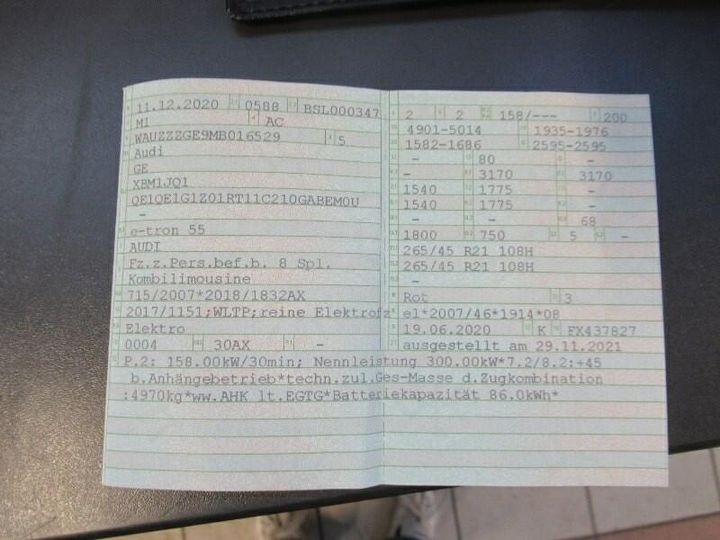 11.12.2020 0588 BSL000347
M1 AC
WAUZZZGE9MB016529 5
Audi
GE
XBM1JQ1
QE1QE1G1Z01RT11C210GABEM0U
-
e-tron 55
AUDI
Fz.z.Pers.bef.b. 8 Spl.
Kombilimousine
715/2007*2018/1832AX
2017/1151;WLTP;reine Elektrofz
Elektro
0004 30AX -
2 2 158/--- 200
4901-5014 1935-1976
1582-1686 2595-2595
- 80 -
- 3170 3170
1540 1775 -
1540 1775 -
- - 68
1800 750 5 -
265/45 R21 108H
265/45 R21 108H
-
Rot 3
e1*2007/46*1914*08
19.06.2020 K FX437827
ausgestellt am 29.11.2021
P.2: 158.00kW/30min; Nennleistung 300.00kW*7.2/8.2:+45
b.Anhängebetrieb*techn.zul.Ges-Masse d.Zugkombination
:4970kg*ww.AHK lt.EGTG*Batteriekapazität 86.0kWh*